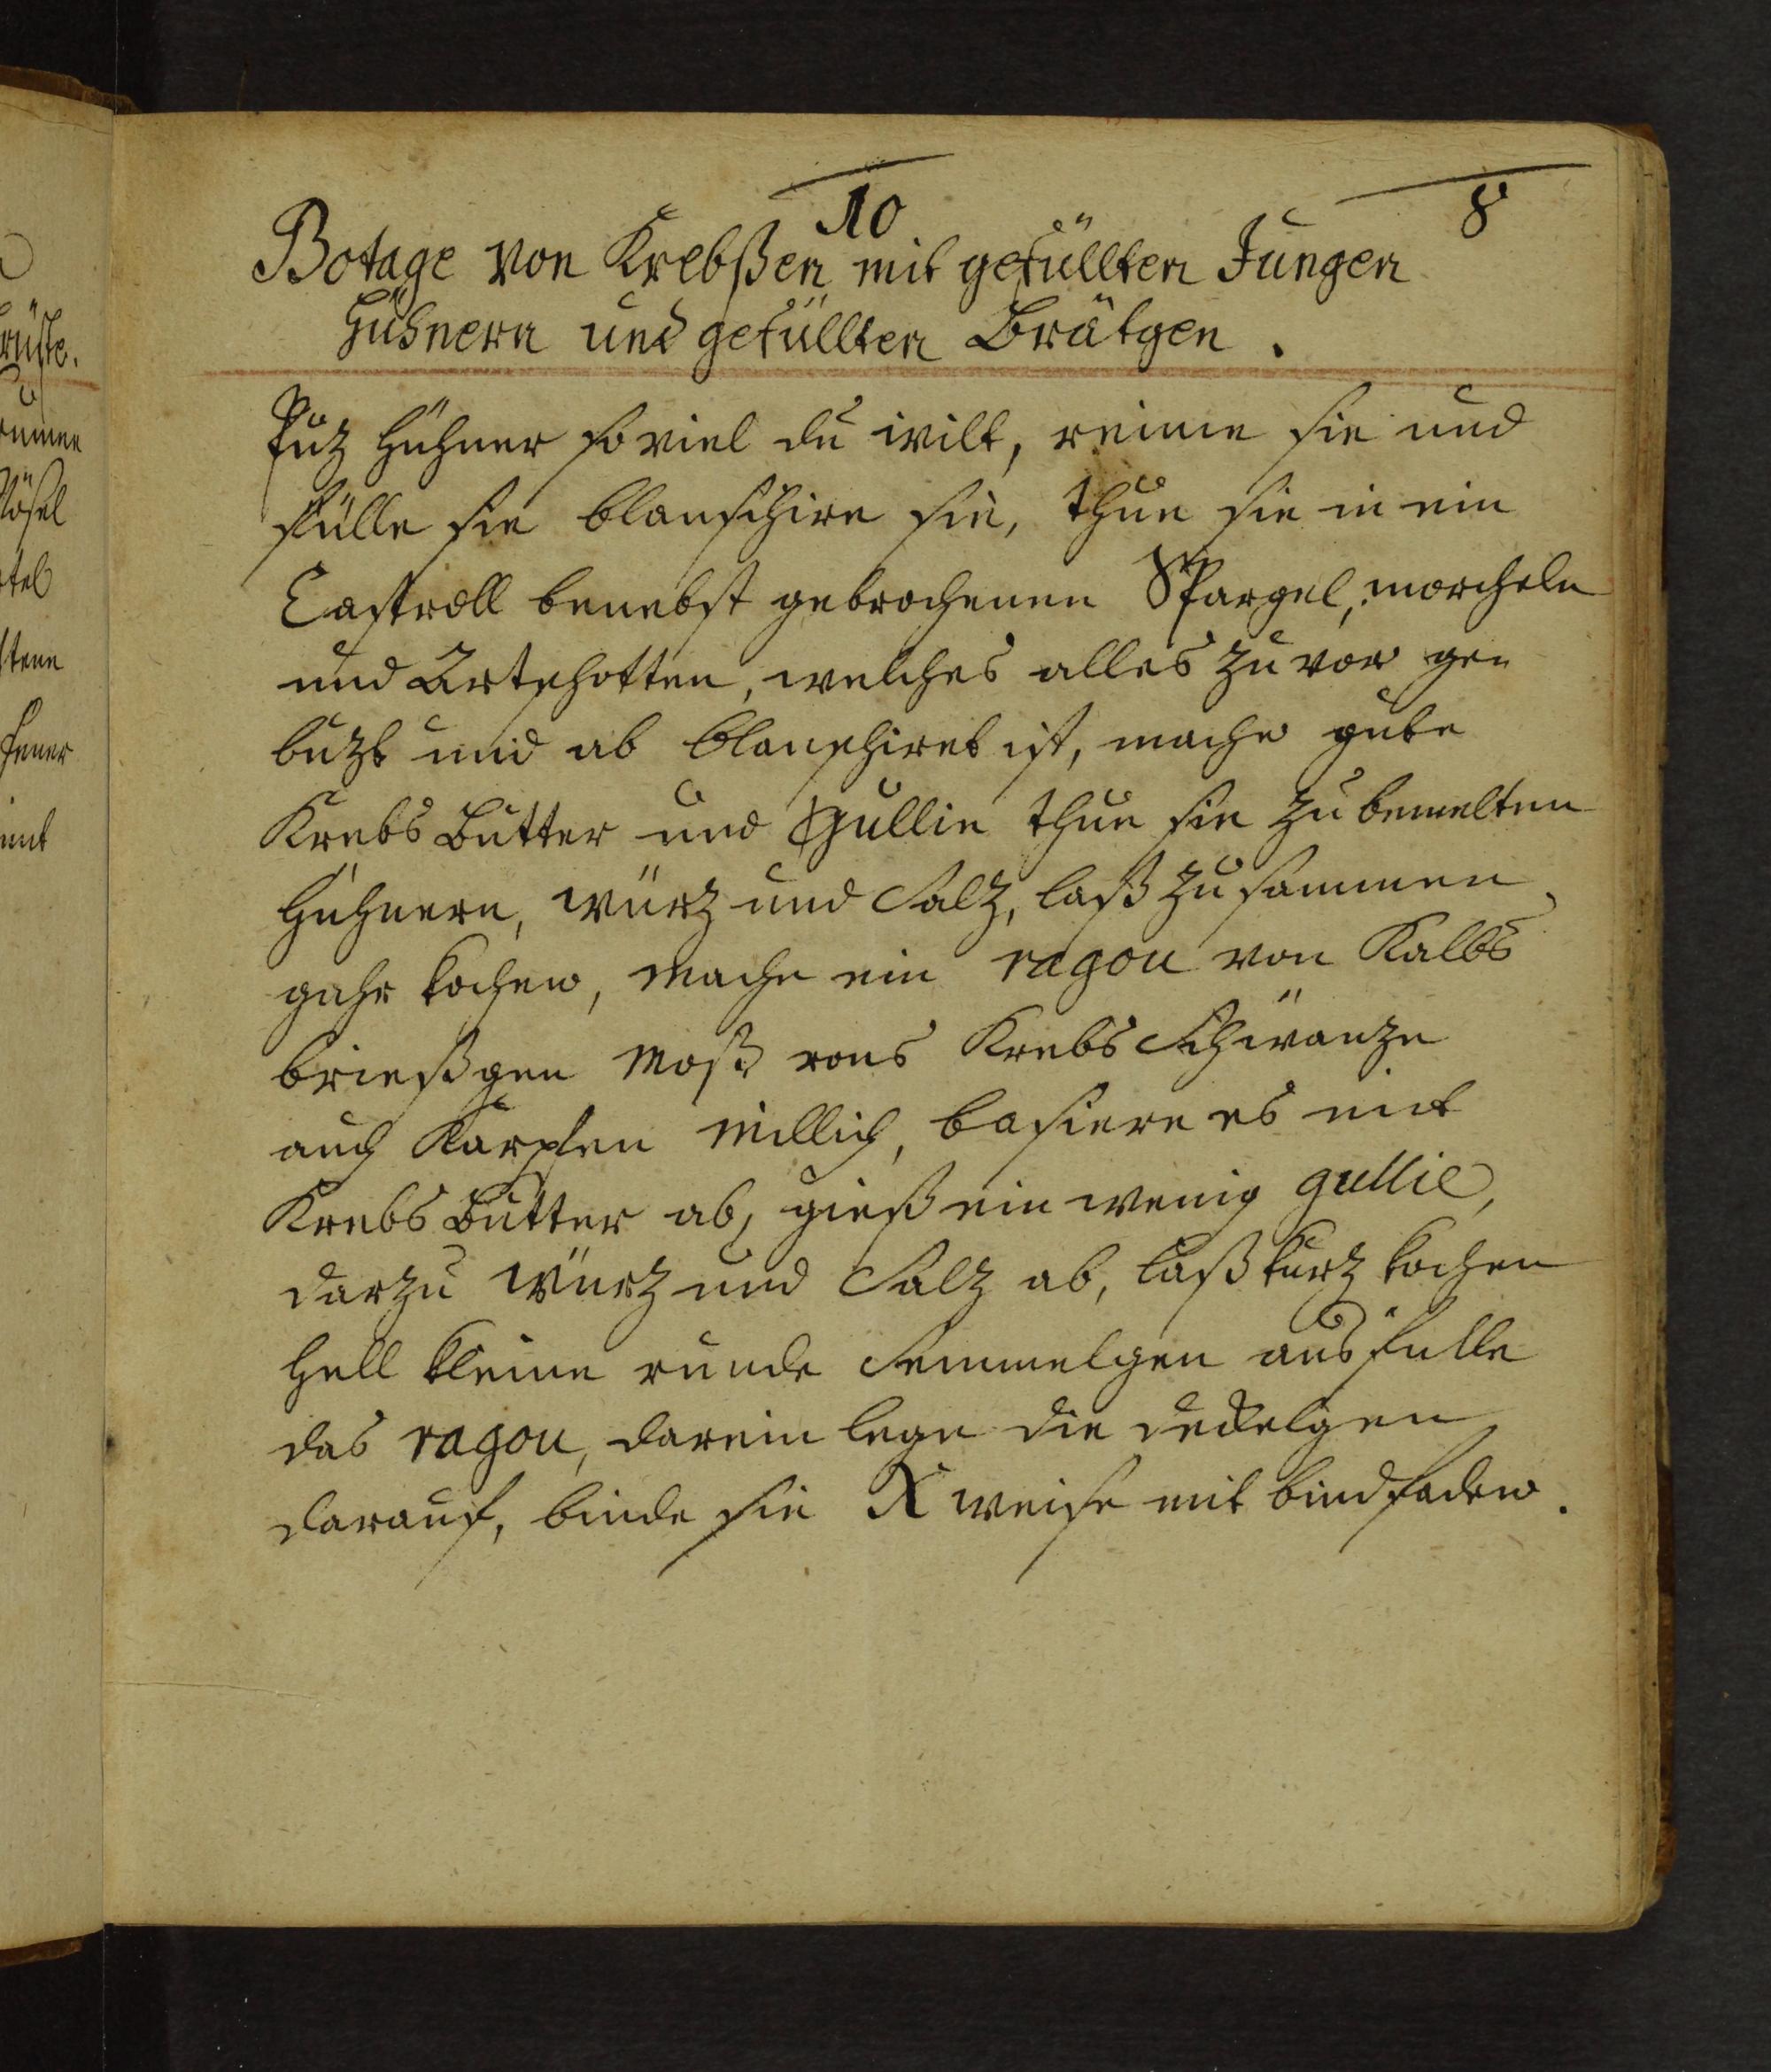 10
8
Botage von Krebßen mit gefüllten Jungen
Hühnern und gefüllten Brätgen.
Puz Hühner so viel du wilt, reinne sie und
fülle sie blanschire sie, thue sie in ein
Castroll benebst gebrochenen Spargel, morcheln
und Artschotten, welches alles zu vor ge-
buzt und ab blanschiret ist, mache gute
Krebs Butter und Gullie thue sie zu bemelten
Hühnern, würz und Saltz, laß zu sammen
gahr kochen, mache ein ragou von Kalbs
brießgen Moß rons Krebs Schwänze
auch Karpfen Millich, basiere es mit
Krebs Butter ab, gieß ein wenig gullie,
darzu würz und Saltz ab, laß kurz kochen
Hell kleine runde Semmelgen aus fülle
das ragou, darein lege die dedelgen
darauf, binde sie X weise mit bindfaden.
rüste.
tel